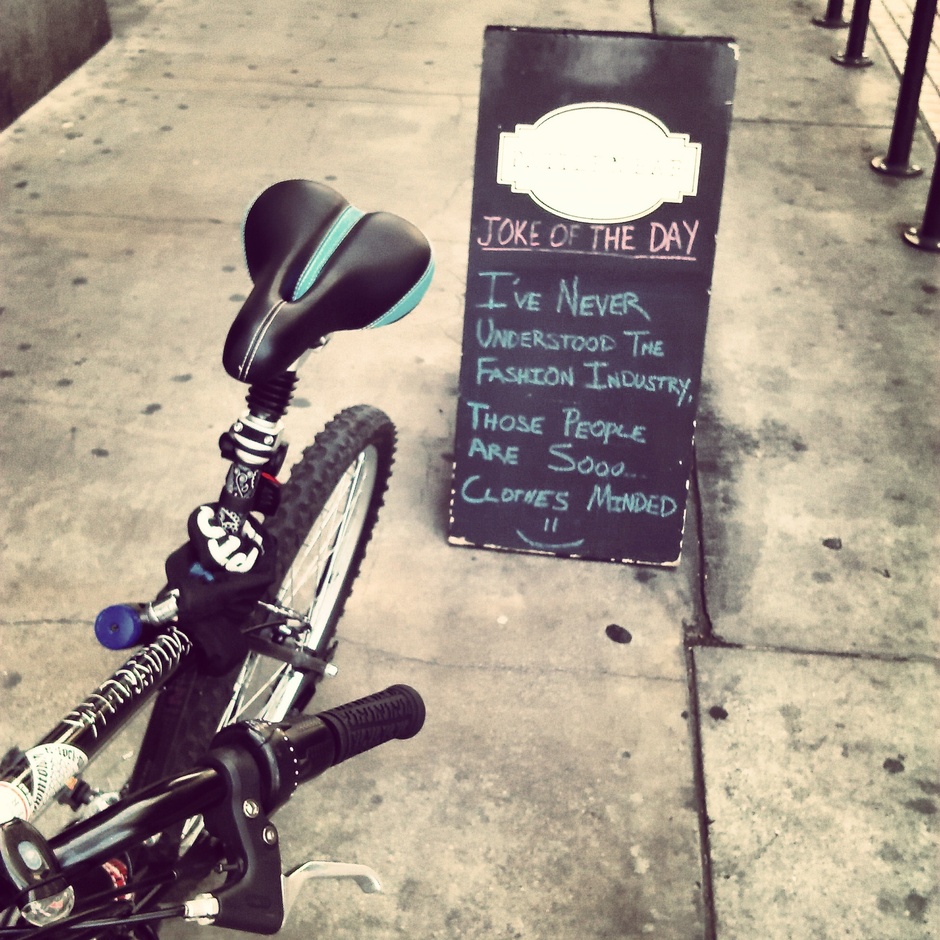 JOKE OF THE DAY
I'VE NEVER
UNDERSTOOD THE
FASHION INDUSTRY,
THOSE PEOPLE
ARE SOOO...
CLOTHES MINDED